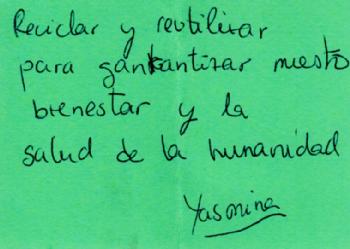 Reciclar y reutilizar
para garantizar nuestro
bienestar y la
salud de la humanidad
Yasmina